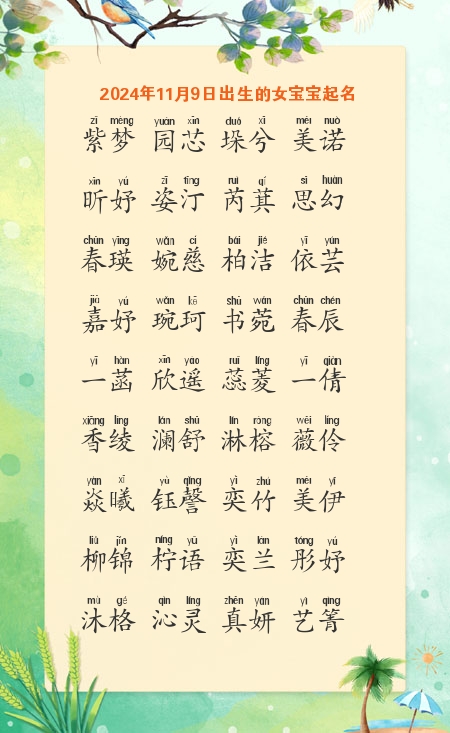 2024年11月9日出生的女宝宝起名
zǐ mèng yuán xīn duǒ xī měi nuò
紫梦 园芯 垛兮 美诺
xīn yú zī tīng ruì qí sī huàn
昕妤 姿汀 芮萁 思幻
chūn yīng wǎn cí bǎi jié yī yún
春瑛 婉慈 柏洁 依芸
jiā yú wǎn kē shū wǎn chūn chén
嘉妤 琬珂 书菀 春辰
yī hàn xīn yáo ruǐ líng yī qiàn
一菡 欣遥 蕊菱 一倩
xiāng líng lán shū lín róng wēi líng
香绫 澜舒 淋榕 薇伶
yàn xī yù qìng yì zhú měi yī
焱曦 钰謦 奕竹 美伊
liǔ jǐn níng yǔ yì lán tóng yú
柳锦 柠语 奕兰 彤妤
mù gé qìn líng zhēn yán yì qìng
沐格 沁灵 真妍 艺箐